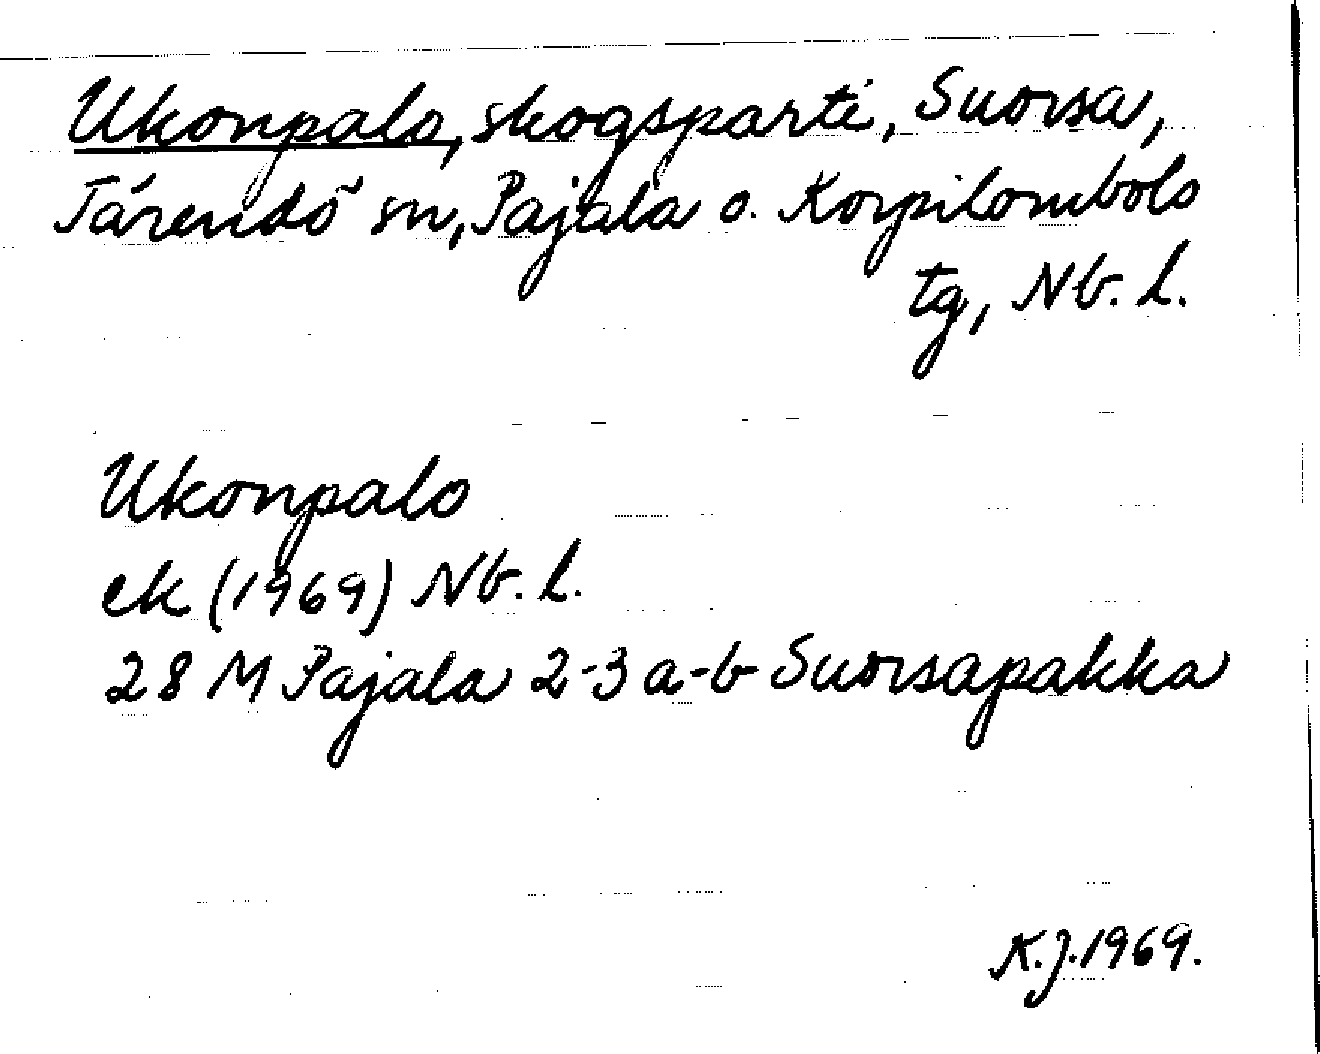 Ukonpalo, skogsparti, Suorsa,
Tärendö sn, Pajala o. Korpilombolo
tg, Nb. l.
Ukonpalo
ek (1969) Nb. l.
28 M Pajala 2-3 a-b Suorsapakka
K.J. 1969.